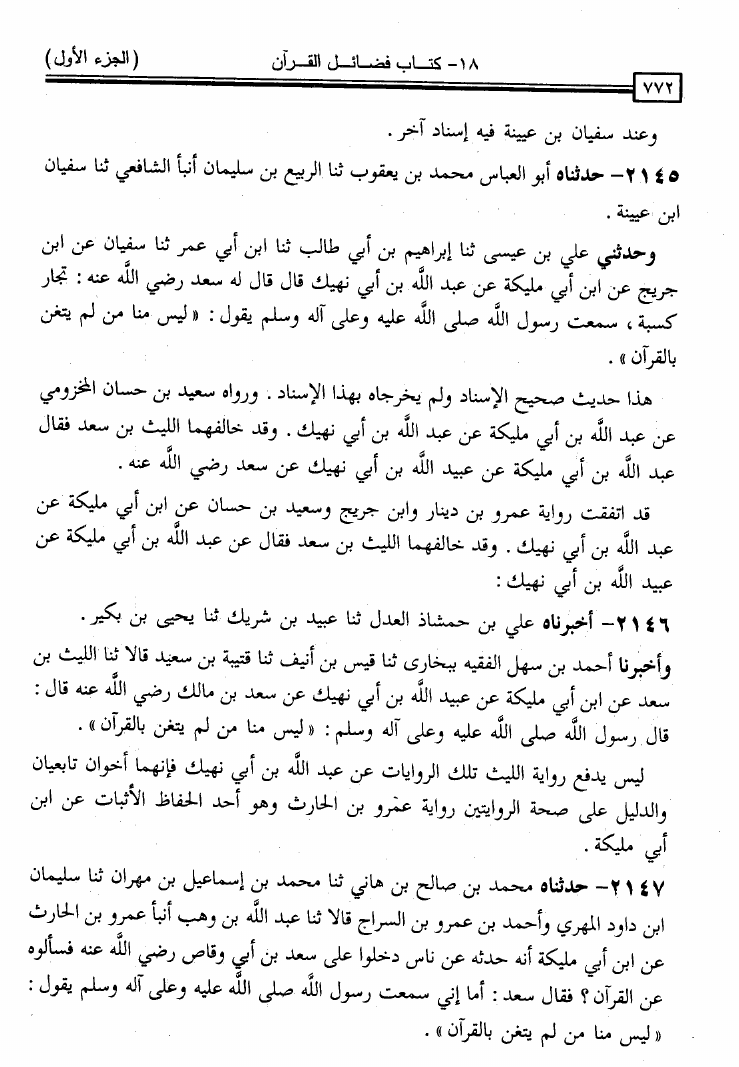 ١٨- كتـاب فضـائـل القـرآن (الجزء الأول)
٧٧٢
وعند سفيان بن عيينة فيه إسناد آخر .
٢١٤٥- حدثناه أبو العباس محمد بن يعقوب ثنا الربيع بن سليمان أنبأ الشافعي ثنا سفيان
ابن عيينة .
وحدثني علي بن عيسى ثنا إبراهيم بن أبي طالب ثنا ابن أبي عمر ثنا سفيان عن ابن
جريج عن ابن أبي مليكة عن عبد اللَّه بن أبي نهيك قال قال له سعد رضي اللَّه عنه : تجار
كسبة ، سمعت رسول اللَّه صلى اللَّه عليه وعلى آله وسلم يقول : « ليس منا من لم يتغن
بالقرآن » .
هذا حديث صحيح الإسناد ولم يخرجاه بهذا الإسناد . ورواه سعيد بن حسان المخزومي
عن عبد اللَّه بن أبي مليكة عن عبد اللَّه بن أبي نهيك . وقد خالفهما الليث بن سعد فقال
عبد اللَّه بن أبي مليكة عن عبيد اللَّه بن أبي نهيك عن سعد رضي اللَّه عنه .
قد اتفقت رواية عمرو بن دينار وابن جريج وسعيد بن حسان عن ابن أبي مليكة عن
عبد اللَّه بن أبي نهيك . وقد خالفهما الليث بن سعد فقال عن عبد اللَّه بن أبي مليكة عن
عبيد اللَّه بن أبي نهيك :
٢١٤٦- أخبرناه علي بن حمشاذ العدل ثنا عبيد بن شريك ثنا يحيى بن بكير .
وأخبرنا أحمد بن سهل الفقيه ببخارى ثنا قيس بن أنيف ثنا قتيبة بن سعيد قالا ثنا الليث بن
سعد عن ابن أبي مليكة عن عبيد اللَّه بن أبي نهيك عن سعد بن مالك رضي اللَّه عنه قال :
قال رسول اللَّه صلى اللَّه عليه وعلى آله وسلم : « ليس منا من لم يتغن بالقرآن » .
ليس يدفع رواية الليث تلك الروايات عن عبد اللَّه بن أبي نهيك فإنهما أخوان تابعيان
والدليل على صحة الروايتين رواية عمرو بن الحارث وهو أحد الحفاظ الأثبات عن ابن
أبي مليكة .
٢١٤٧- حدثناه محمد بن صالح بن هاني ثنا محمد بن إسماعيل بن مهران ثنا سليمان
ابن داود المهري وأحمد بن عمرو بن السراج قالا ثنا عبد اللَّه بن وهب أنبأ عمرو بن الحارث
عن ابن أبي مليكة أنه حدثه عن ناس دخلوا على سعد بن أبي وقاص رضي اللَّه عنه فسألوه
عن القرآن ؟ فقال سعد : أما إني سمعت رسول اللَّه صلى اللَّه عليه وعلى آله وسلم يقول :
« ليس منا من لم يتغن بالقرآن » .